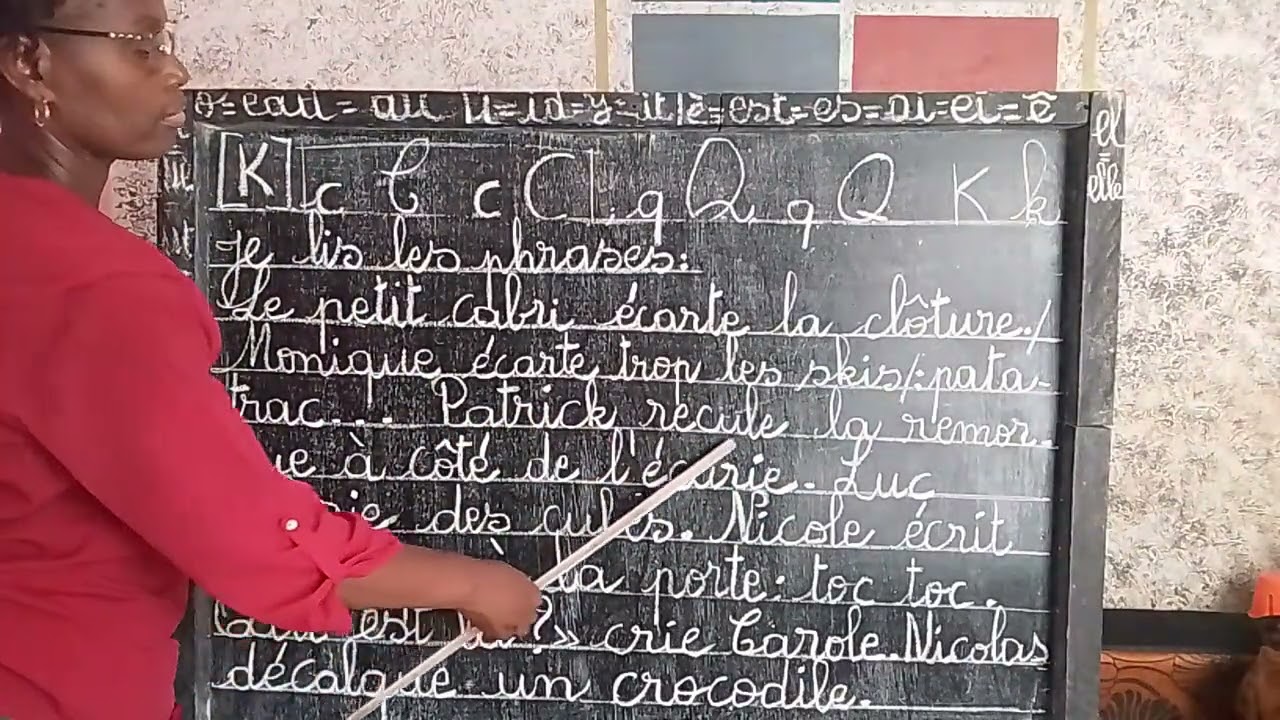 o = eau = au u = id = y = it è = est = es = ai = ei = ê
el = elle
[K] c C c C q Q q Q K k
je lis les phrases:
Le petit cabri écarte la clôture./
Monique écarte trop les skis/: pata-
trac... Patrick recule la remor-
à côté de l'écurie. Luc
des cubes. Nicole écrit
la porte: toc toc.
est là ?» crie Carole. Nicolas
décalque un crocodile.